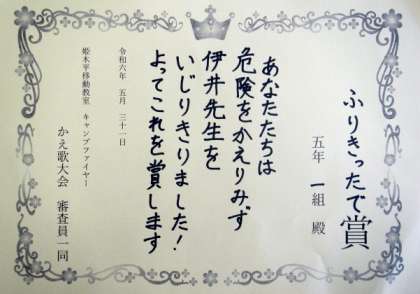 ふりきったで賞
五年 一組 殿
あなたたちは
危険をかえりみず
伊井先生を
いじりきりました!
よってこれを賞します
令和六年 五月 三十一日
姫木平移動教室 キャンプファイヤー
かえ歌大会 審査員一同